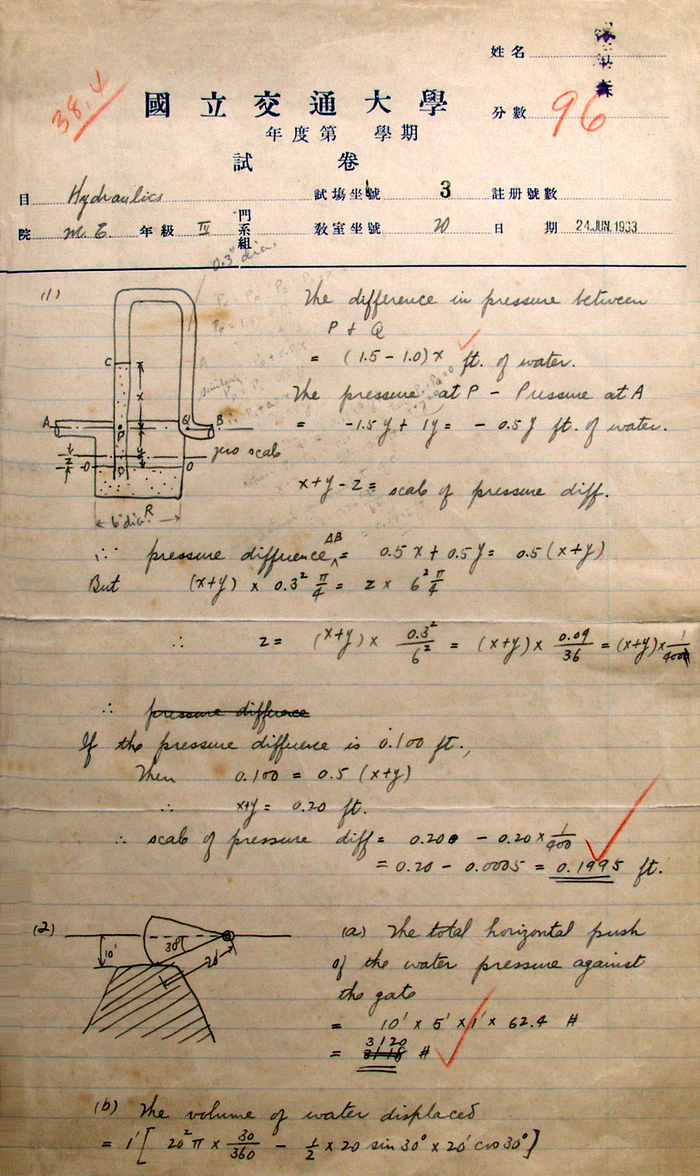 姓名
38.4
國立交通大學
分數 96
年度第 學期
試 卷
目 Hydraulics 試場坐號 3 註册號數
院 M.E. 年級 IV 門系組 教室坐號 20 日期 24 JUN. 1933
0.3" dia.
(1) The difference in pressure between
P + Q
= (1.5 - 1.0) x ft. of water.
The pressure at P - Pressure at A
= -1.5y + 1y = - 0.5y ft. of water.
C
x
A P Q B
zero scale
z O D O
x+y-z = scale of pressure diff.
6" dia. R
∴ pressure difference AB = 0.5x + 0.5y = 0.5 (x+y)
But (x+y) × 0.3² π/4 = z × 6² π/4
∴ z = (x+y) × 0.3²/6² = (x+y) × 0.09/36 = (x+y) × 1/400
∴ pressure difference
If the pressure difference is 0.100 ft.,
Then 0.100 = 0.5 (x+y)
∴ x+y = 0.20 ft.
∴ scale of pressure diff = 0.200 - 0.20 × 1/400
= 0.20 - 0.0005 = 0.1995 ft.
(2) (a) The total horizontal push
10' 30° 20'
of the water pressure against
the gate
= 10' × 5' × 1' × 62.4 #
= 3120 #
(b) The volume of water displaced
= 1' [ 20² π × 30/360 - 1/2 × 20 sin 30° × 20' cos 30° ]